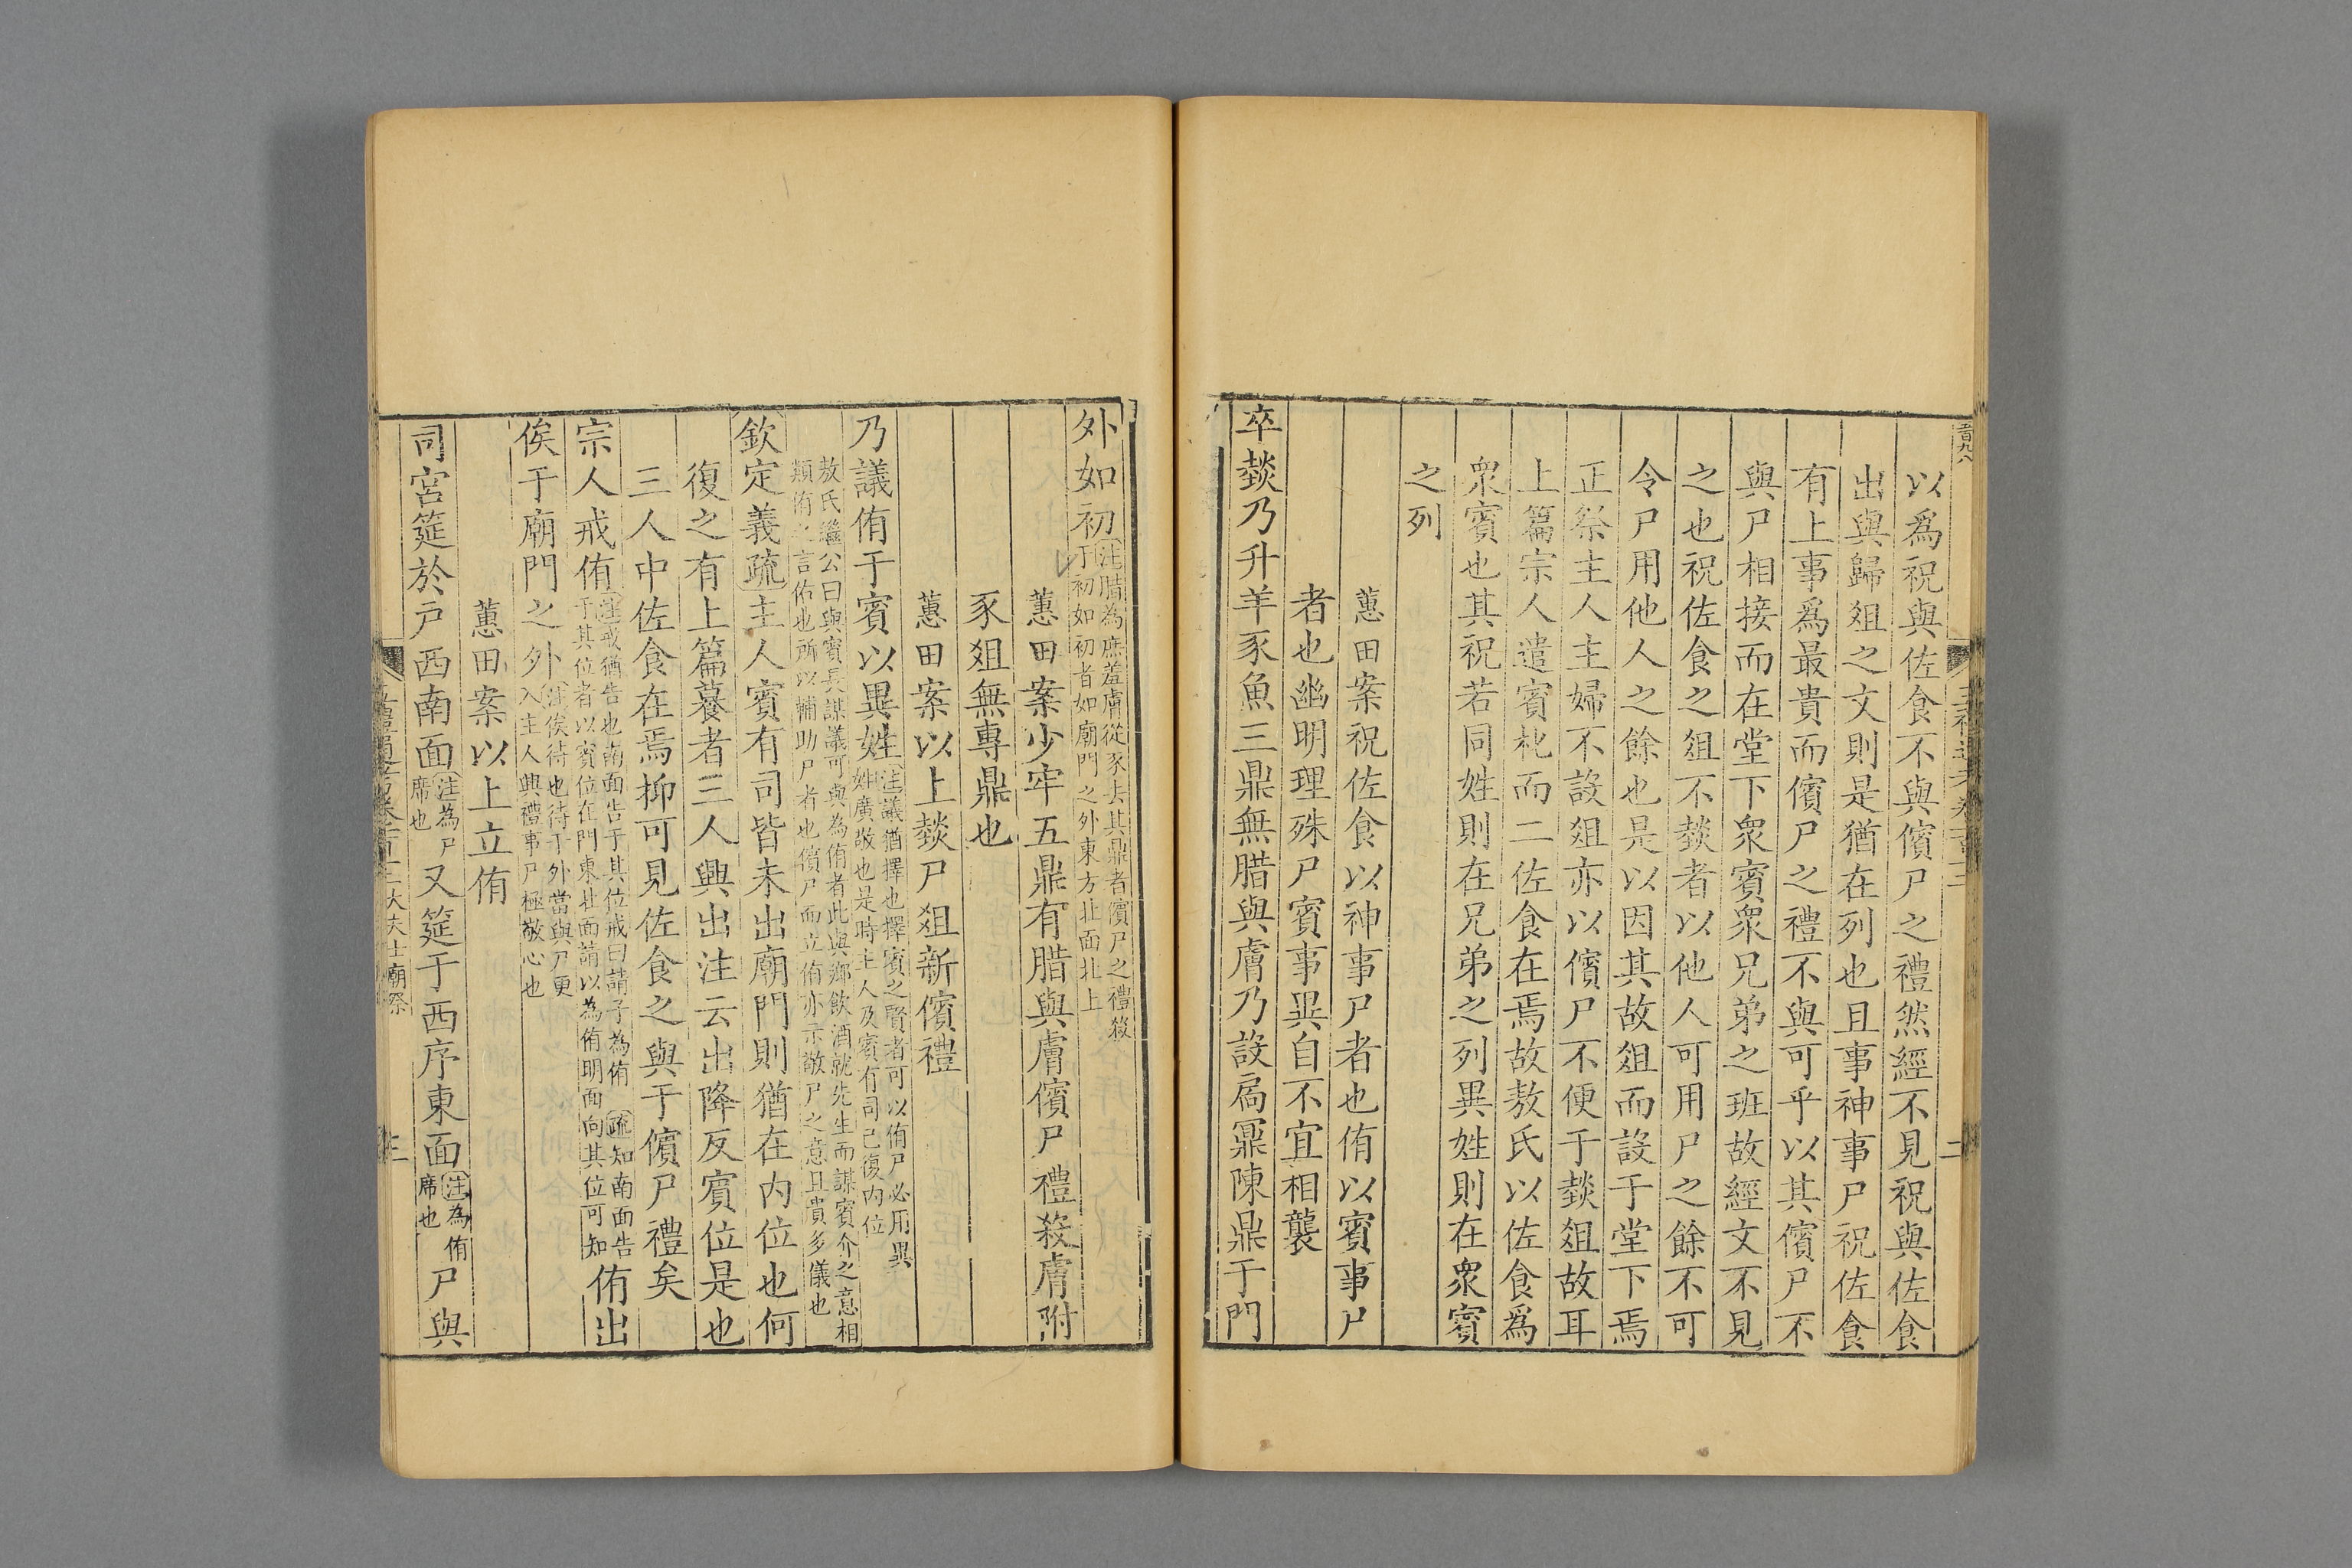 以爲祝與佐食不與儐尸之禮然經不見祝與佐食
出與歸俎之文則是猶在列也且事神事尸祝佐食
有上事爲最貴而儐尸之禮不與可乎以其儐尸不
與尸相接而在堂下衆賓衆兄弟之班故經文不見
之也祝佐食之俎不燅者以他人可用尸之餘不可
令尸用他人之餘也是以因其故俎而設于堂下焉
正祭主人主婦不設俎亦以儐尸不便于燅俎故耳
上篇宗人遣賓朼而二佐食在焉故敖氏以佐食爲
衆賓也其祝若同姓則在兄弟之列異姓則在衆賓
之列
蕙田案祝佐食以神事尸者也侑以賓事尸
者也幽明理殊尸賓事異自不宜相襲
卒燅乃升羊豕魚三鼎無腊與膚乃設扃鼏陳鼎于門
外如初注腊為庶羞膚從豕去其鼎者儐尸之禮殺
于初如初者如廟門之外東方北面北上
蕙田案少牢五鼎有腊與膚儐尸禮殺膚附
豕俎無專鼎也
蕙田案以上燅尸俎新儐禮
乃議侑于賓以異姓注議猶擇也擇賓之賢者可以侑尸必用異
姓廣敬也是時主人及賓有司已復內位
敖氏繼公曰與賓長謀議可與為侑者此與鄉飲酒就先生而謀賓介之意相
類侑之言佑也所以輔助尸者也儐尸而立侑亦示敬尸之意且貴多儀也
欽定義疏主人賓有司皆未出廟門則猶在內位也何
復之有上篇養者三人興出注云出降反賓位是也
三人中佐食在焉抑可見佐食之與于儐尸禮矣
宗人戒侑注戒猶告也南面告于其位戒曰請子為侑 疏知南面告
于其位者以賓位在門東北面請以為侑明面向其位可知侑出
俟于廟門之外注俟待也待于外當與尸更
入主人興禮事尸極敬心也
蕙田案以上立侑
司宮筵於戶西南面注為尸
席也又筵于西序東面注為侑
席也尸與
大夫士廟祭